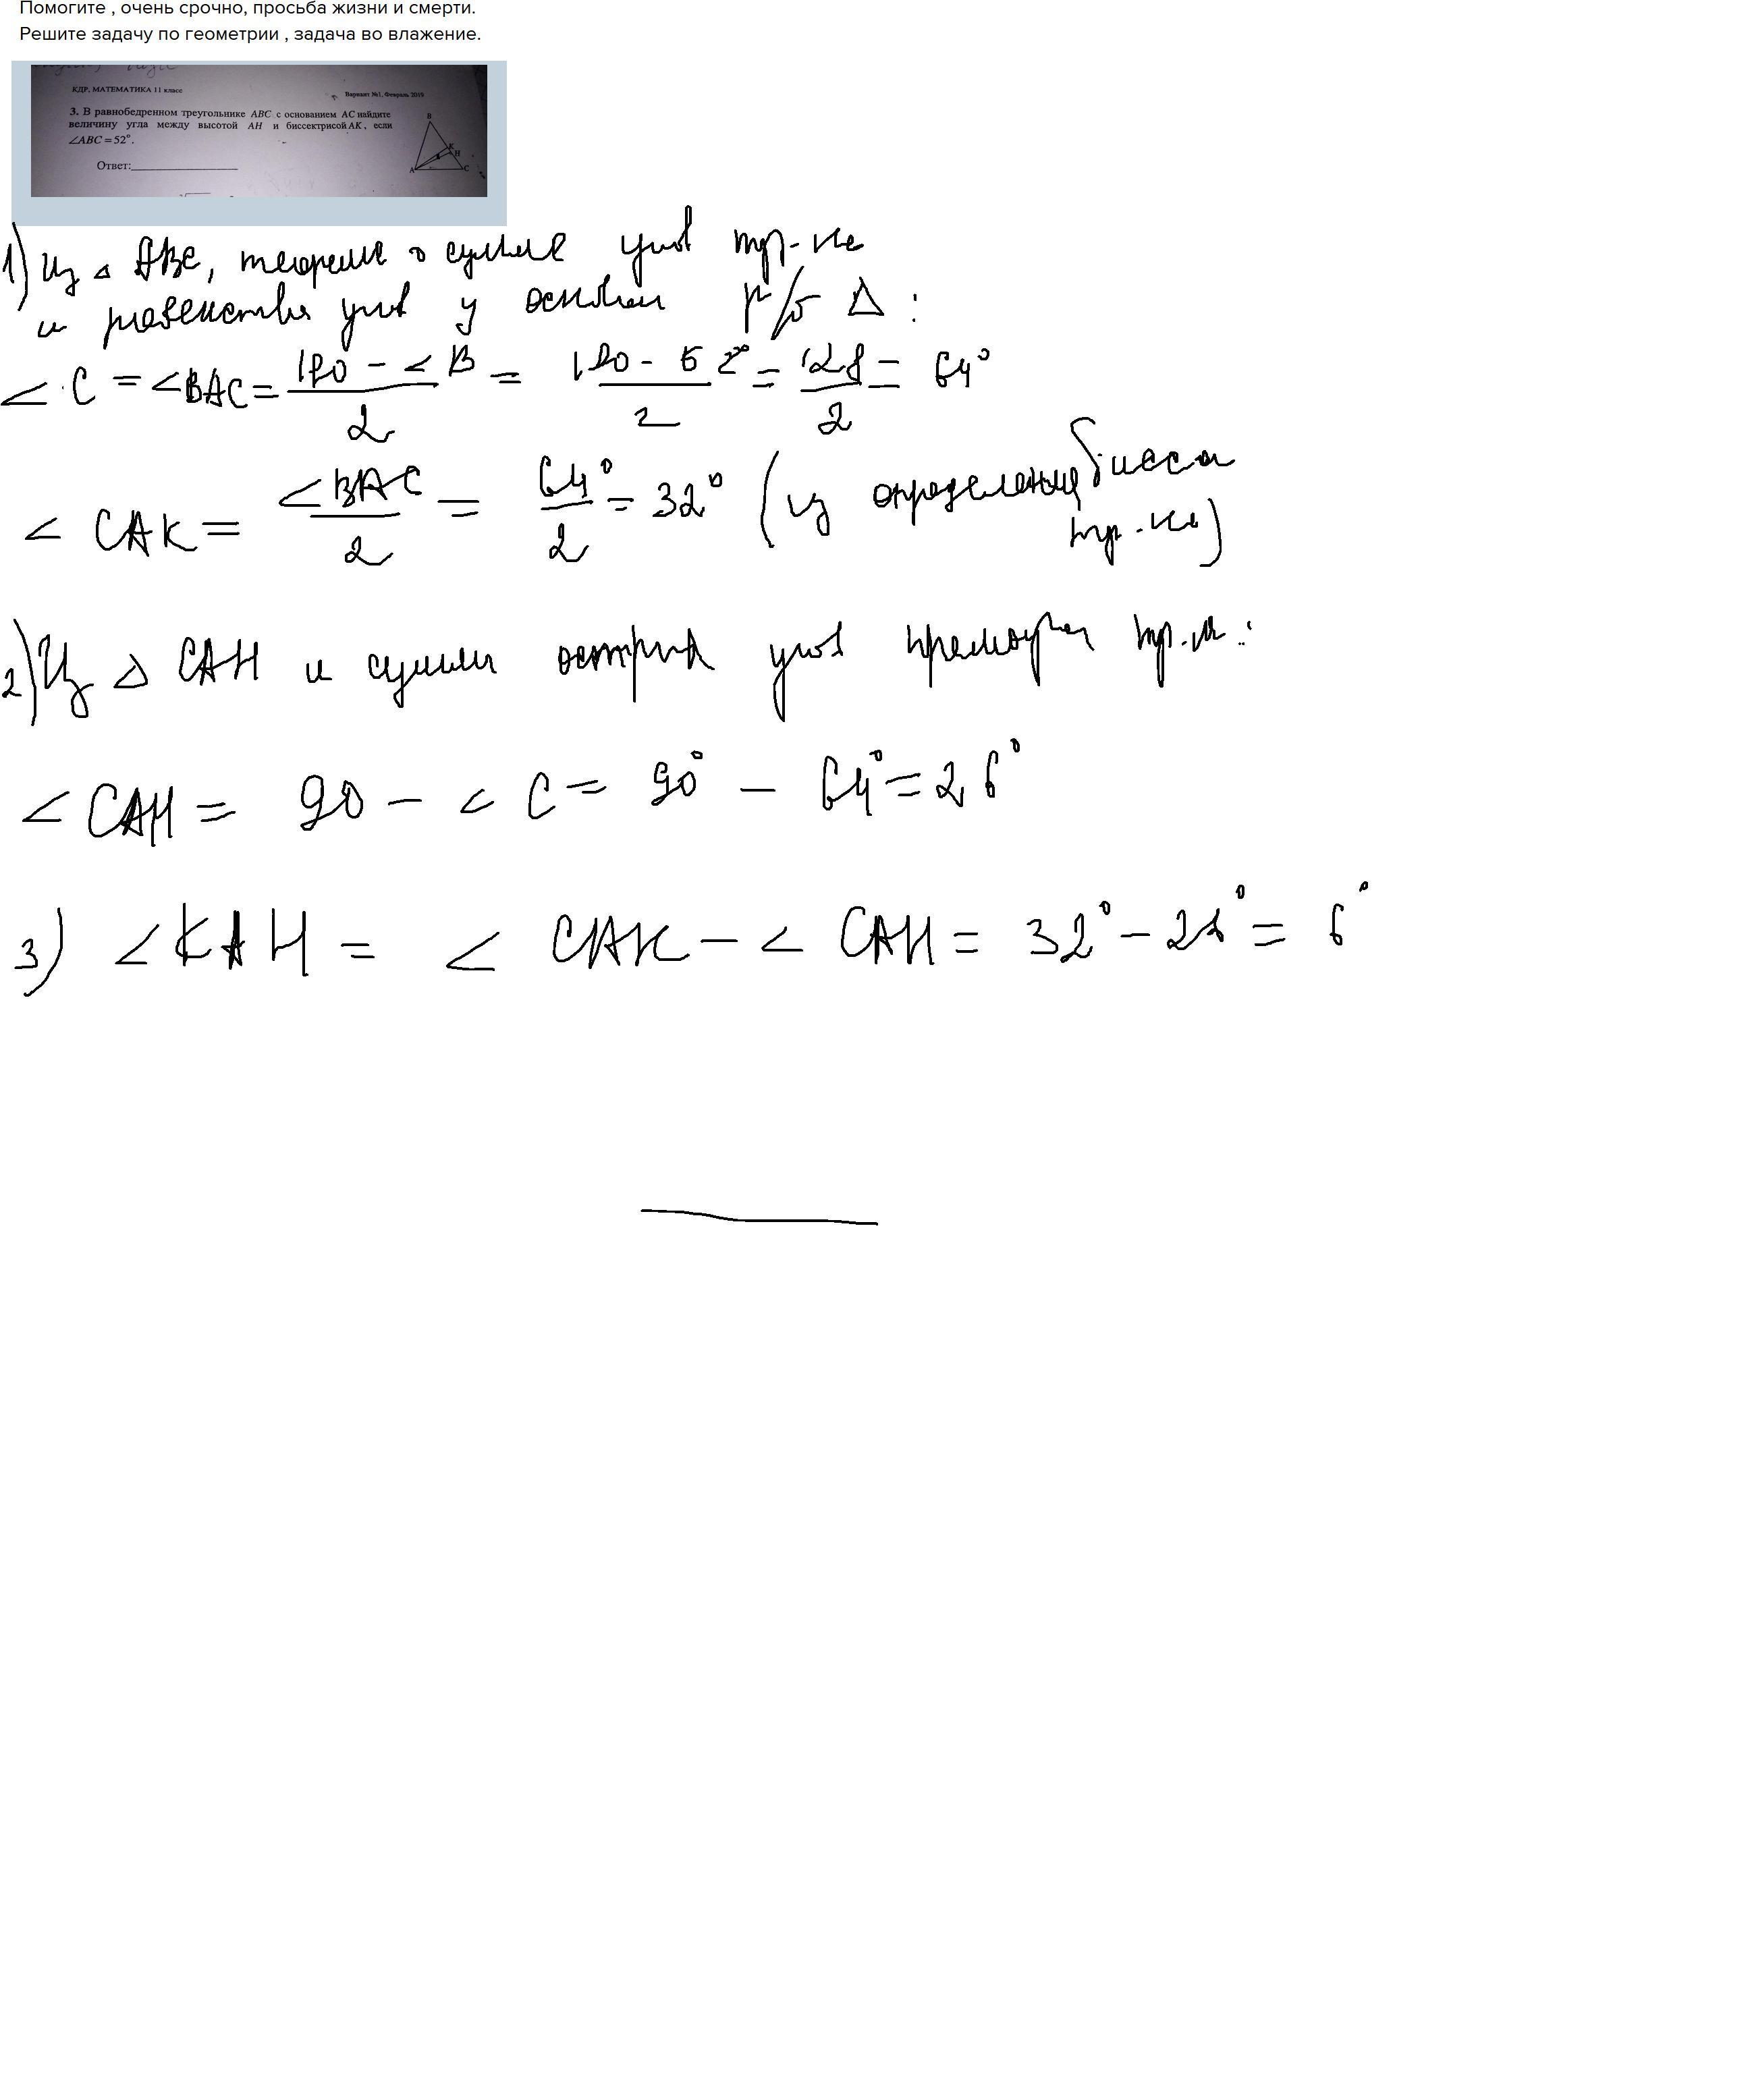 Помогите , очень срочно, просьба жизни и смерти.
Решите задачу по геометрии , задача во влажение.
КДР, МАТЕМАТИКА 11 класс
Вариант №1, Февраль 2019
3. В равнобедренном треугольнике ABC с основанием AC найдите
величину угла между высотой AH и биссектрисой AK, если
∠ABC = 52°.
Ответ:
B
K
H
A
C
1) Из △ ABC, теоремы о сумме углов тр-ка
и равенства углов у основан р/б △ :
∠ C = ∠BAC = (180 - ∠ B)/2 = (180 - 52°)/2 = 128/2 = 64°
∠ CAK = ∠BAC/2 = 64°/2 = 32° (из определения
тр-ка)
2) Из △ CAH и суммы острых углов прямоуг тр-ка :
∠ CAH = 90 - ∠ C = 90° - 64° = 26°
3) ∠KAH = ∠ CAK - ∠ CAH = 32° - 26° = 6°